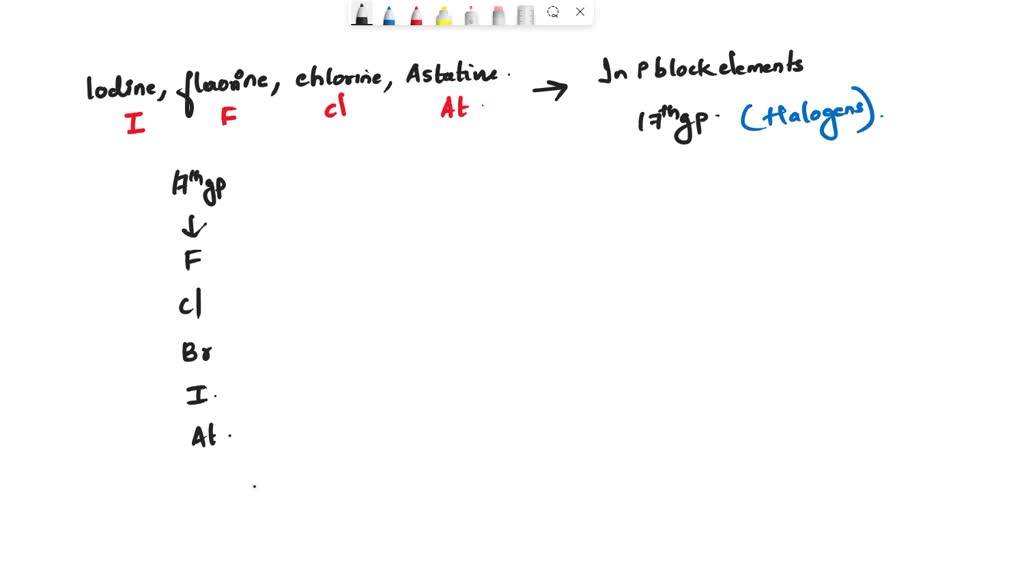 Iodine, fluorine, chlorine, Astatine. → In P block elements
I F Cl At. 17th gp. (Halogens).
17th gp
↓
F
Cl
Br
I.
At.